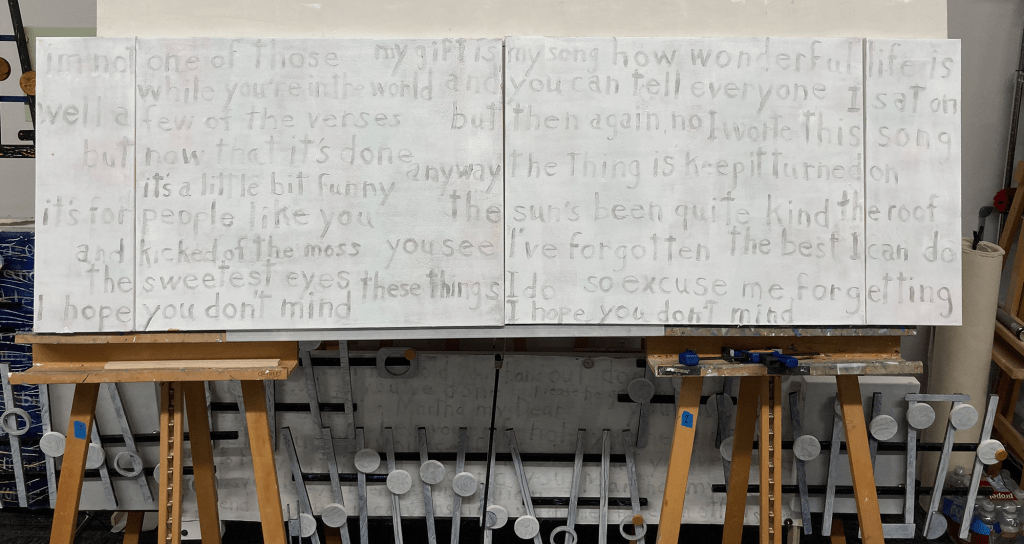 im not one of those my gift is my song how wonderful life is
while you're in the world and you can tell everyone I sat on
well a few of the verses but then again, no I worte this song
but now that it's done anyway the thing is keep it turned on
it's a little bit funny
it's for people like you the sun's been quite kind the roof
and kicked of the moss you see I've forgotten the best I can do
the sweetest eyes these things I do so excuse me forgetting
I hope you don't mind I hope you don't mind
Martha my Dear